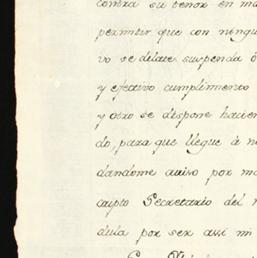 contra su tenor en ma
permitir que con ningu
vo se dilate suspenda ó
y efectivo cumplimiento
y otro se dispone hacien
do, para que llegue à no
dandome aviso por ma
cripto Secretario del r
dula por ser assi mi